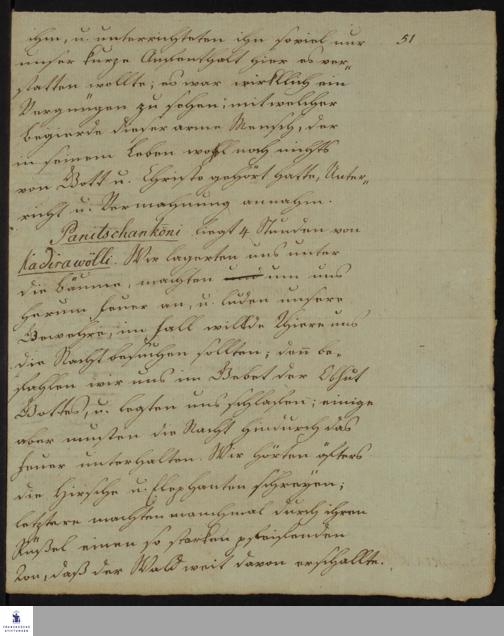 ihm, u. unterrichteten ihn soviel nur
51
unser kurze Aufenthalt hier es ver-
statten wollte; es war wirklich ein
Vergnügen zu sehen, mit welcher
Begierde dieser arme Mensch, der
in seinem Leben wohl noch nichts
von Gott u. Christo gehört hatte, Unter-
richt u. Vermahnung annahm.
Panitschankoni liegt 4 Stunden von
Nadirawölli. Wir lagerten uns unter
die Bäume, machten um uns
herum Feuer an, u. luden unsere
Gewehre, im Fall wilde Thiere uns
die Nacht besuchen sollten; dann be-
fahlen wir uns im Gebet der Obhut
Gottes, u. legten uns schlafen; einige
aber musten die Nacht hindurch das
Feuer unterhalten. Wir hörten öfters
die Hirsche u. Elephanten schreyen;
letztere machten manchmal durch ihren
Rüßel einen so starken pfeifenden
Ton, daß der Wald weit davon erschallte.
FRANCKESCHE
STIFTUNGEN